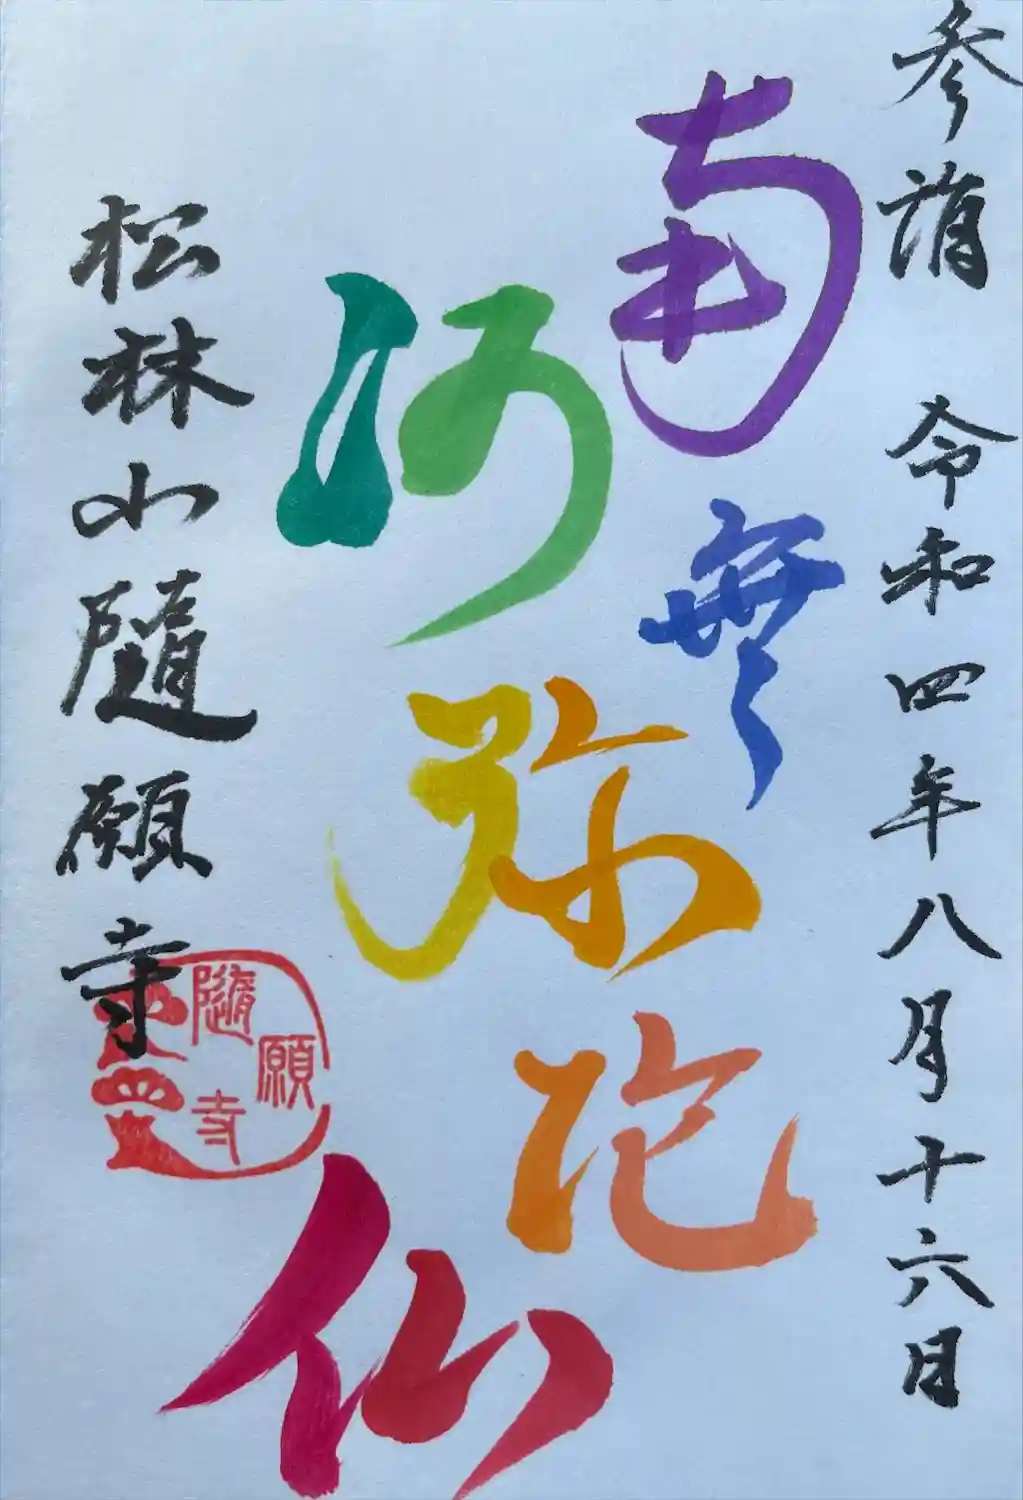 参詣 令和四年八月十六日
南無
阿弥陀仏
松林山隨願寺
隨願寺